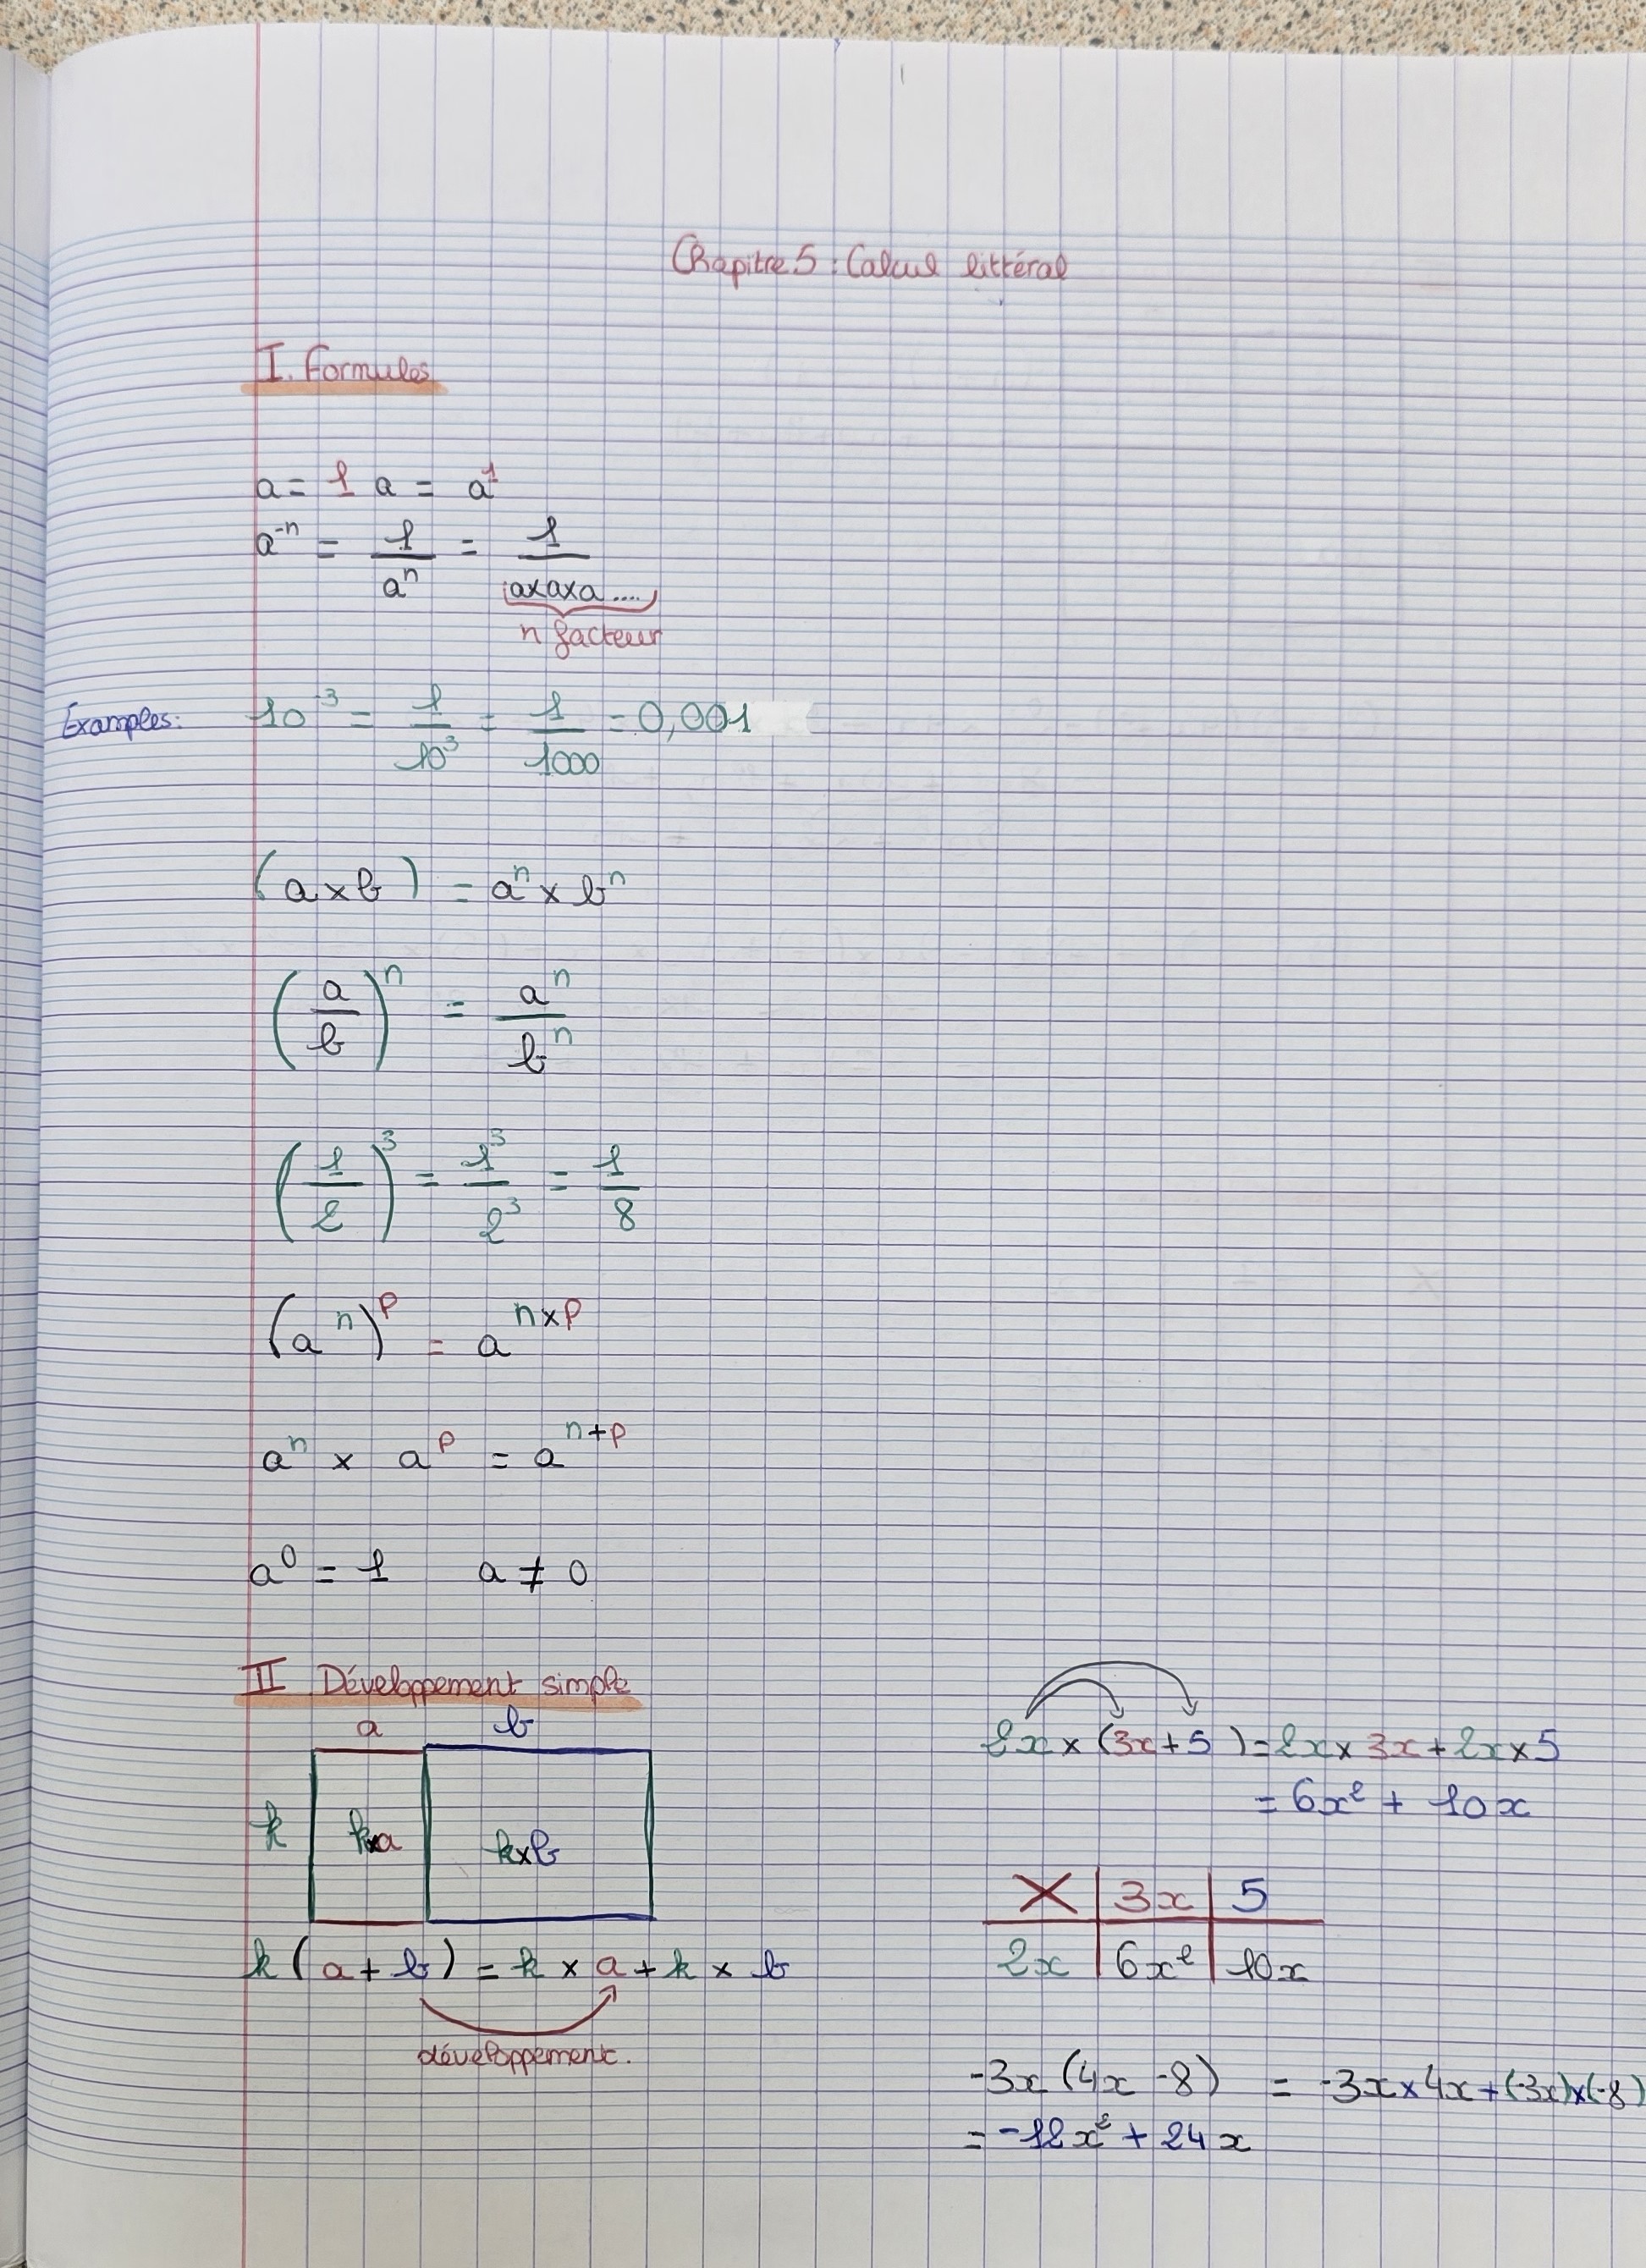 Chapitre 5 : Calcul littéral
I. Formules
a = 1 a = a¹
a⁻ⁿ = 1/aⁿ = 1/(a×a×a....)
n facteur
Examples: 10⁻³ = 1/10³ = 1/1000 = 0,001
(a × b) = aⁿ × bⁿ
(a/b)ⁿ = aⁿ/bⁿ
(1/2)³ = 1³/2³ = 1/8
(aⁿ)ᵖ = aⁿˣᵖ
aⁿ × aᵖ = aⁿ⁺ᵖ
a⁰ = 1 a ≠ 0
II Développement simple
a b
k k×a k×b
k (a + b) = k × a + k × b
développement.
2x × (3x + 5) = 2x × 3x + 2x × 5
= 6x² + 10x
× 3x 5
2x 6x² 10x
-3x (4x - 8) = -3x × 4x + (-3x) × (-8)
= -12x² + 24x